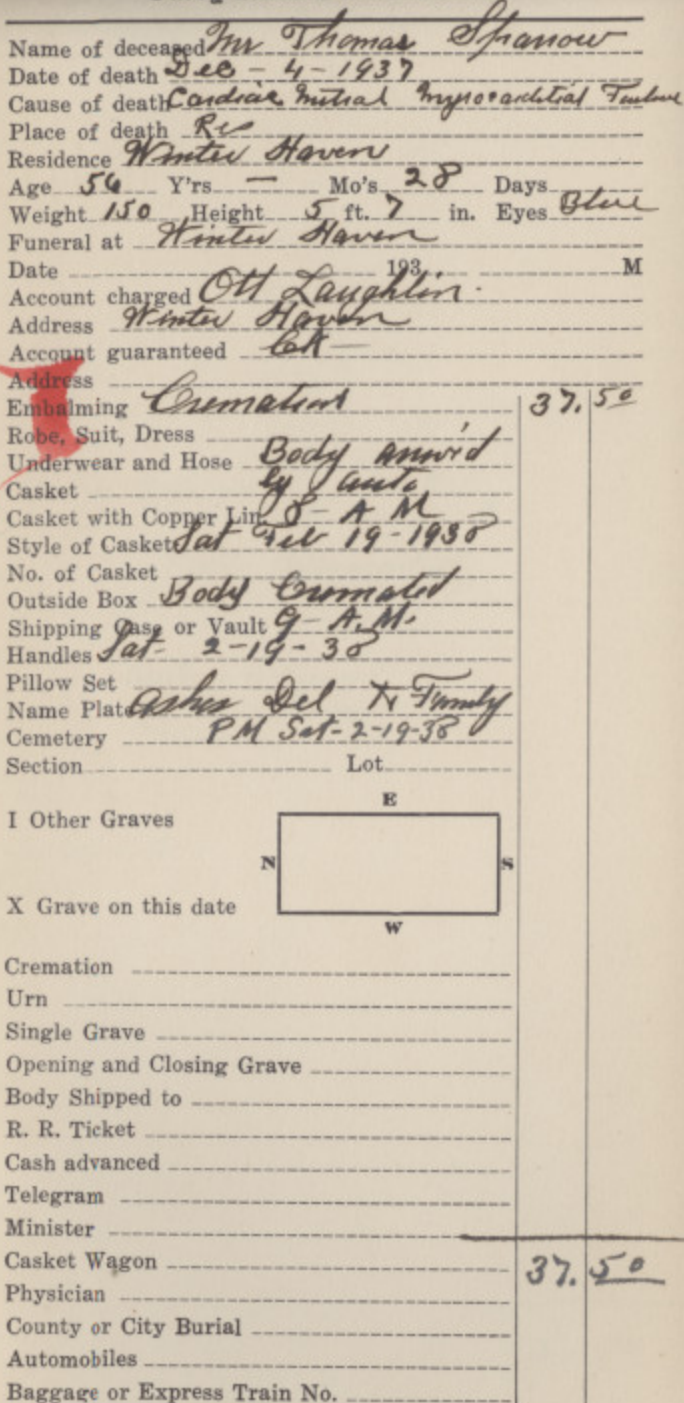 Name of deceased Mr Thomas Sparrow
Date of death Dec - 4 - 1937
Cause of death Cardiac Mitral Myrocardial Failure
Place of death Res
Residence Winter Haven
Age 56 Y'rs — Mo's 28 Days
Weight 150 Height 5 ft. 7 in. Eyes Blue
Funeral at Winter Haven
Date 193 M
Account charged Ott Laughlin.
Address Winter Haven
Account guaranteed
Address
Embalming Cremation 37.50
Robe, Suit, Dress
Underwear and Hose Body arriv'd
Casket by auto
Casket with Copper Lin 8 - A M
Style of Casket Sat Feb 19 - 1938
No. of Casket
Outside Box Body Cremated
Shipping Case or Vault 9 - A.M.
Handles Sat - 2 - 19 - 38
Pillow Set
Name Plate Ashes Del to Family
Cemetery PM Sat - 2 - 19 - 38
Section Lot
E
I Other Graves
N S
X Grave on this date
W
Cremation
Urn
Single Grave
Opening and Closing Grave
Body Shipped to
R. R. Ticket
Cash advanced
Telegram
Minister
Casket Wagon 37.50
Physician
County or City Burial
Automobiles
Baggage or Express Train No.